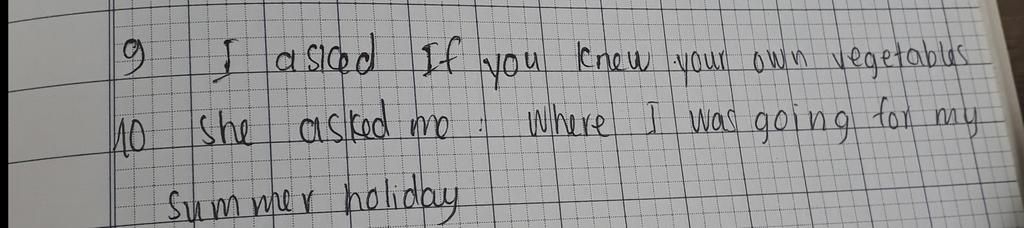 9 I asked If you knew your own vegetables
10 She asked me : Where I was going for my
summer holiday